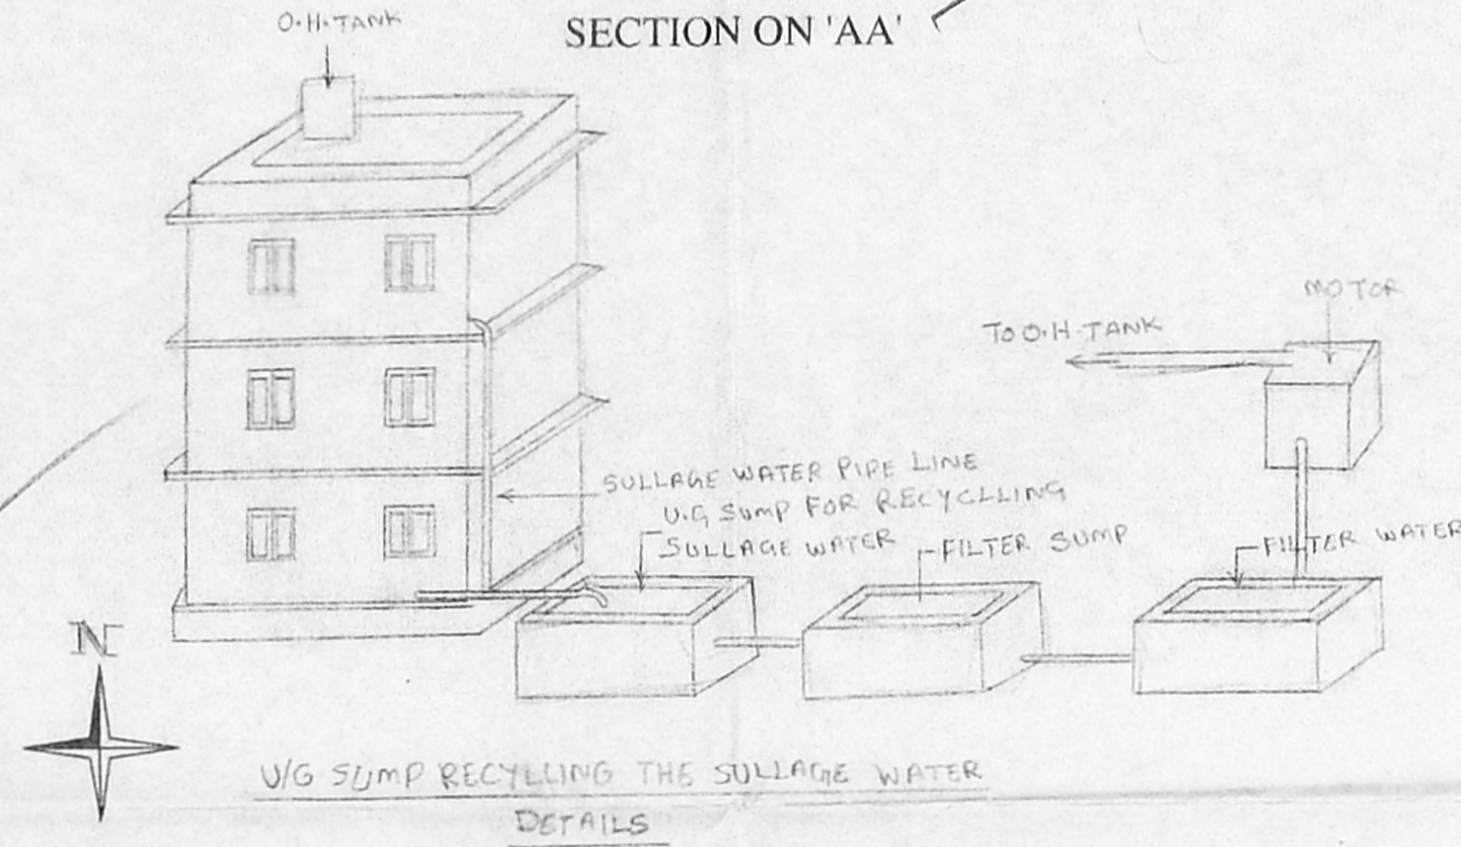 SECTION ON 'AA'
O.H.TANK
MOTOR
TO O.H TANK
SULLAGE WATER PIPE LINE
U.G SUMP FOR RECYCLLING
SULLAGE WATER
FILTER SUMP
FILTER WATER
N
U/G SUMP RECYLLING THE SULLAGE WATER
DETAILS